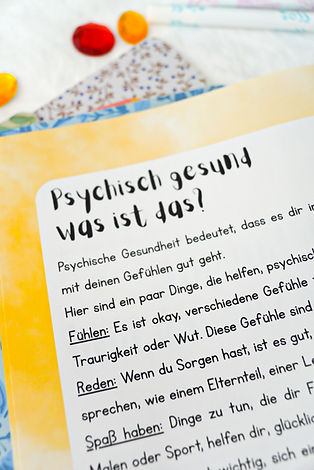 Psychisch gesund
was ist das?
Psychische Gesundheit bedeutet, dass es dir in
mit deinen Gefühlen gut geht.
Hier sind ein paar Dinge, die helfen, psychisch
Fühlen: Es ist okay, verschiedene Gefühle
Traurigkeit oder Wut. Diese Gefühle sind
Reden: Wenn du Sorgen hast, ist es gut,
sprechen, wie einem Elternteil, einer
Spaß haben: Dinge zu tun, die dir
Malen oder Sport, helfen dir, glücklich
wichtig, sich